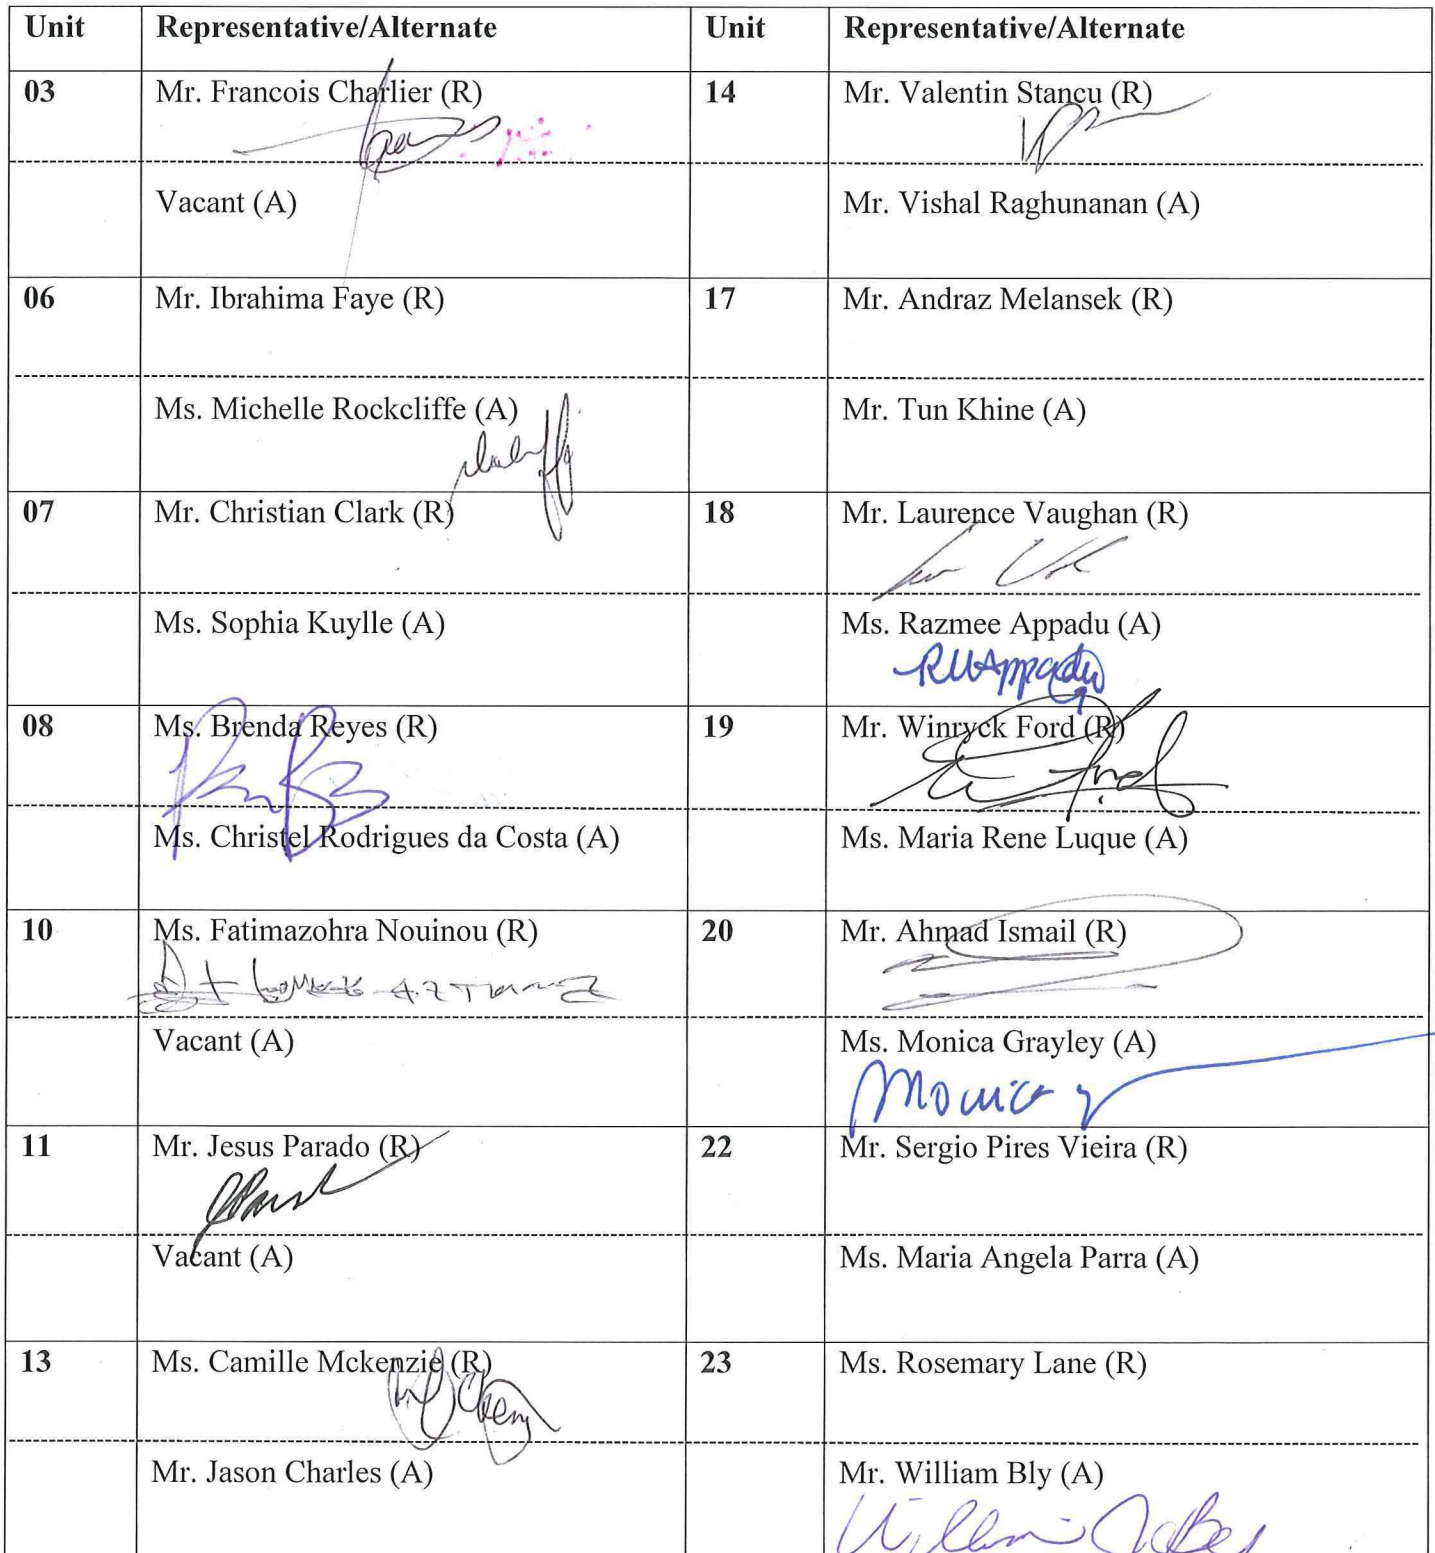 Unit Representative/Alternate Unit Representative/Alternate
03 Mr. Francois Charlier (R) 14 Mr. Valentin Stancu (R)
Vacant (A) Mr. Vishal Raghunanan (A)
06 Mr. Ibrahima Faye (R) 17 Mr. Andraz Melansek (R)
Ms. Michelle Rockcliffe (A) Mr. Tun Khine (A)
07 Mr. Christian Clark (R) 18 Mr. Laurence Vaughan (R)
Ms. Sophia Kuylle (A) Ms. Razmee Appadu (A)
08 Ms. Brenda Reyes (R) 19 Mr. Winryck Ford (R)
Ms. Christel Rodrigues da Costa (A) Ms. Maria Rene Luque (A)
10 Ms. Fatimazohra Nouinou (R) 20 Mr. Ahmad Ismail (R)
Vacant (A) Ms. Monica Grayley (A)
Monica
11 Mr. Jesus Parado (R) 22 Mr. Sergio Pires Vieira (R)
Vacant (A) Ms. Maria Angela Parra (A)
13 Ms. Camille Mckenzie (R) 23 Ms. Rosemary Lane (R)
Mr. Jason Charles (A) Mr. William Bly (A)